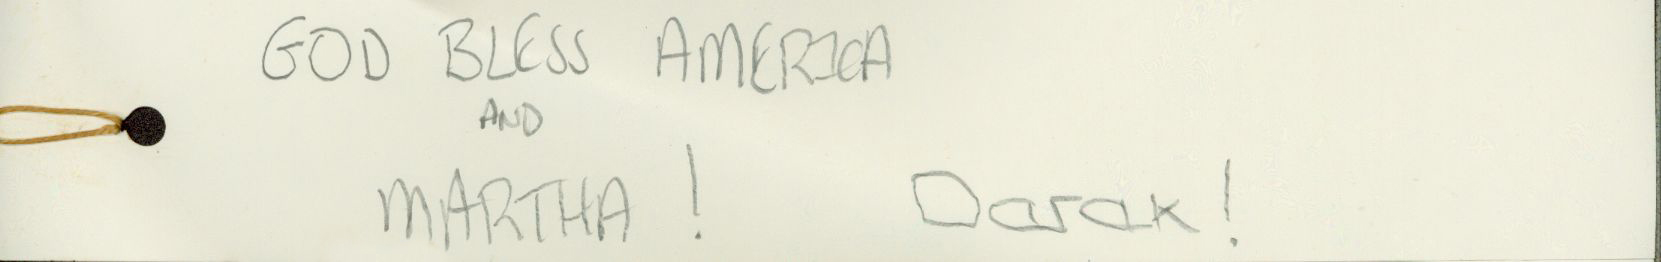 GOD BLESS AMERICA
AND
MARTHA! Darax!